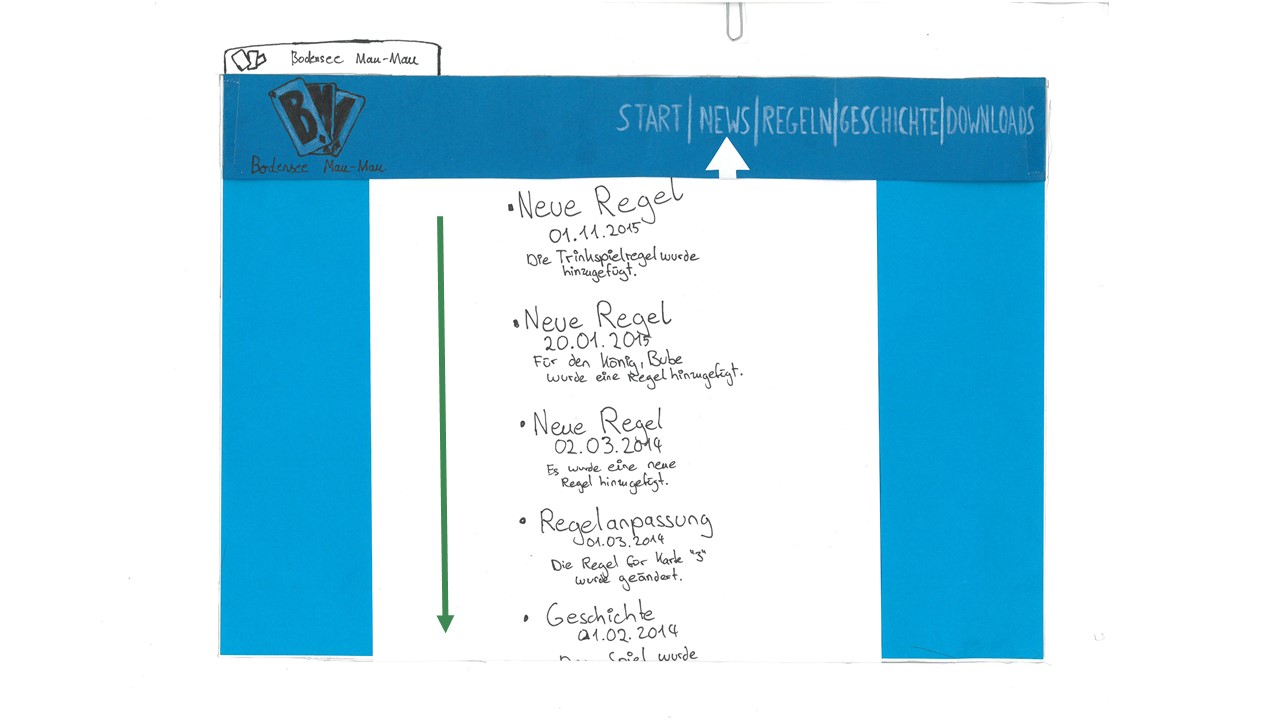 Bodensee Mau-Mau
B M !
Bodensee Mau-Mau
START | NEWS | REGELN | GESCHICHTE | DOWNLOADS
• Neue Regel
01.11.2015
Die Trinkspielregel wurde
hinzugefügt.
• Neue Regel
20.01.2015
Für den König, Bube
wurde eine Regel hinzugefügt.
• Neue Regel
02.03.2014
Es wurde eine neue
Regel hinzugefügt.
• Regelanpassung
01.03.2014
Die Regel für Karte "3"
wurde geändert.
• Geschichte
01.02.2014
Spiel wurde